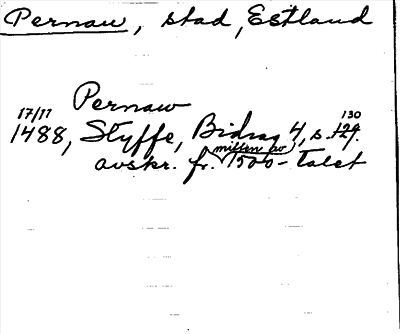 Pernau, stad, Estland
Pernaw
17/11
130
1488, Styffe, Bidrag 4, s. 129.
mitten av
avskr. fr. 1500-talet